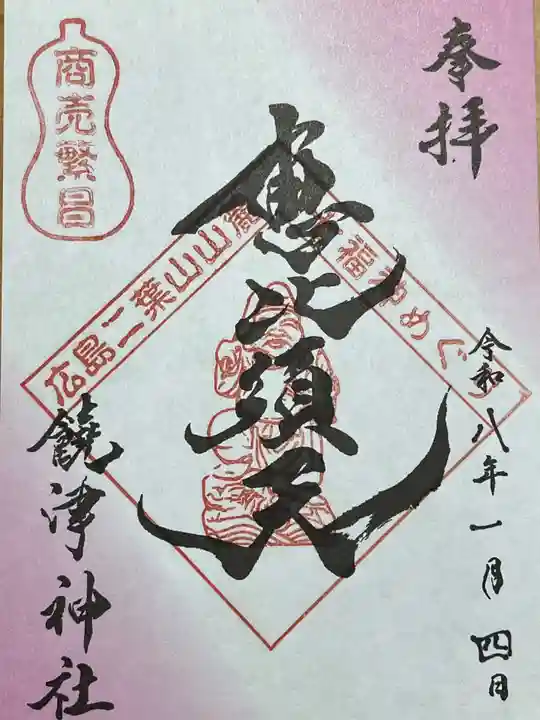 奉拝
商売繁昌
恵比須天
広島二葉山山麓
福神めぐり
令和八年一月四日
饒津神社